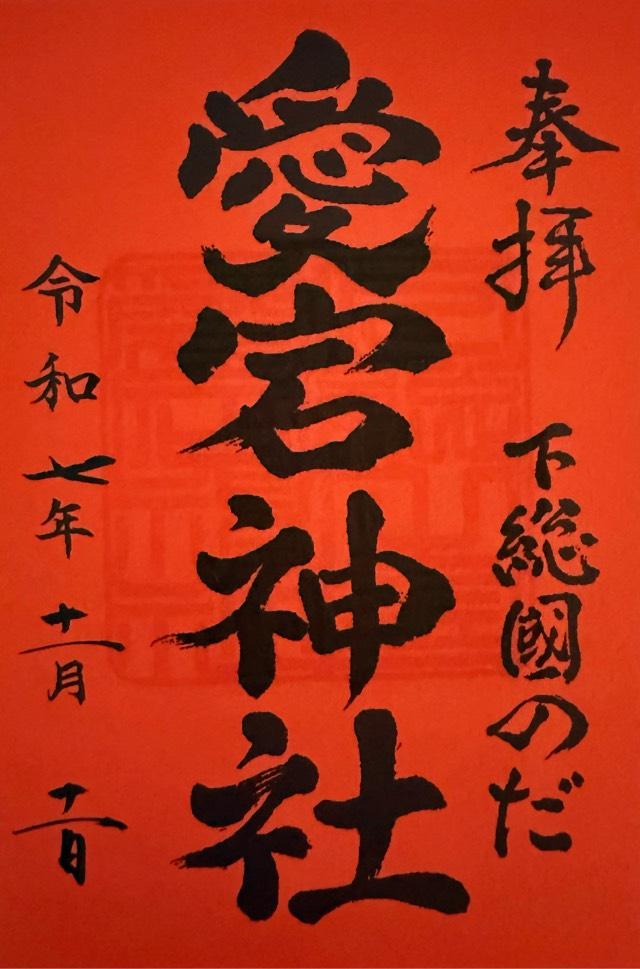 奉拝
下総國のだ
愛宕神社
令和七年十一月十一日